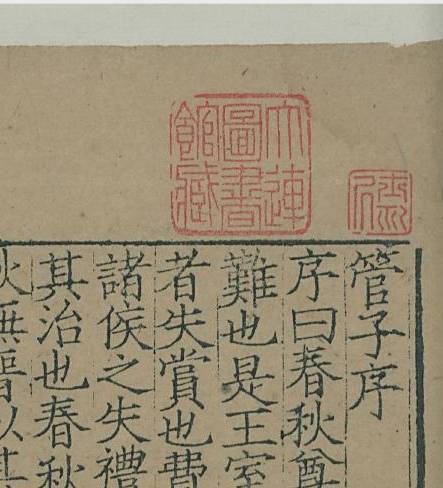 大連
圖書
館藏
管子序
序曰春秋尊
難也是王室
者失賞也費
諸侯之失禮
其治也春秋
無晉以其